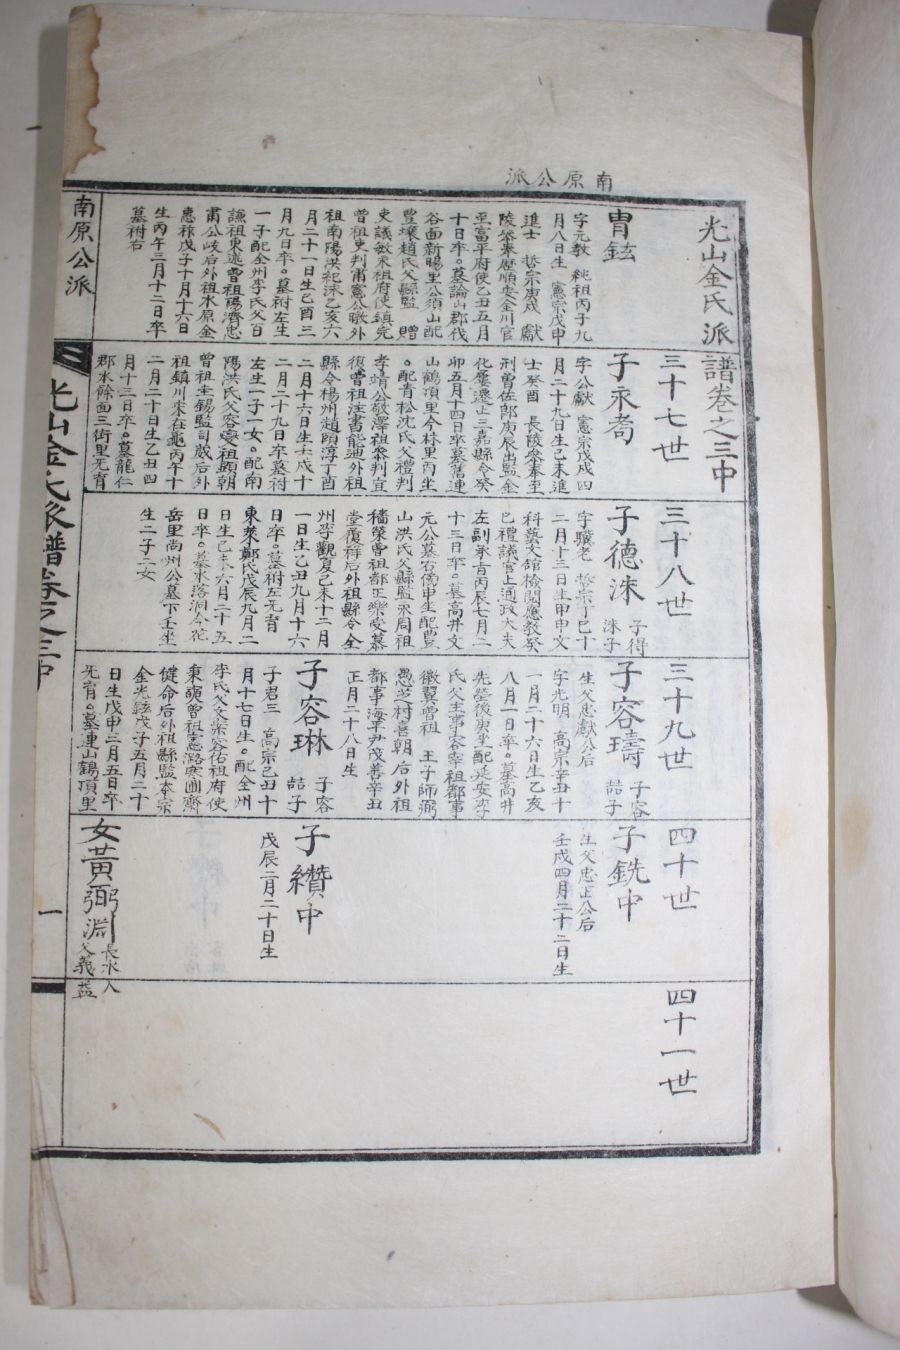 南原公派
光山金氏派譜卷之三中
冑鉉
字元敎 純祖丙子九
月八日生 憲宗戊申
進士 哲宗庚戌 獻
陵參奉歷順安金川官
至富平府使乙丑五月
十日卒。墓論山郡伐
谷面新暘里公須山配
豐壤趙氏父縣監 贈
史議敏永祖府使鎭完
曾祖史判甫憲公曒外
祖南陽洪祀洙乙亥六
月二十一日生己酉三
月九日卒。墓祔左生
一子配全州李氏父百
謙祖東逑曾祖陽濟忠
肅公岐后外祖水原金
惠祚戊子十月十六日
生丙午三月十二日卒
墓祔右
三十七世
子永耈
字公獻 憲宗戊戌四
月二十九日生己未進
士癸酉 長陵參奉至
刑曹佐郞庚辰出監金
化屢遷止三嘉縣令癸
卯五月十四日卒墓舊連
山鶴項里今林里丙坐
。配靑松沈氏父禮判
孝靖公敬澤祖參判宜
復曾祖注書能迪外祖
縣令楊州趙頤淳丁酉
二月十六日生壬戌十
二月二十九日卒墓祔
左生一子一女。配南
陽洪氏父容燮祖顯朝
曾祖圭錫監司戭后外
祖鎭川宋在龜丙午十
二月二十日生乙丑四
月十三日卒。墓龍仁
郡水餘面三街里无育
三十八世
子德洙 子得洙子
字驥老 哲宗丁巳十
二月十三日生甲申文
科藝文館檢閱應敎癸
巳禮議官止通政大夫
左副承旨丙辰七月二
十三日卒。墓高井文
元公墓右傍申坐配豊
山洪氏父縣監承周祖
穡榮曾祖都正樂受慕
堂履祥后外祖縣令全
州李觀夏己未十二月
一日生乙丑九月十六
日卒。墓祔左无育 配
東萊鄭氏戊辰九月二
日生己未六月二十五
日卒。墓水落洞今花
岳里尙州公墓下壬坐
生二子二女
三十九世
子容璹 子容喆子
生父忠獻公后
字光明 高宗辛丑十
一月二十六日生乙亥
八月一日卒。墓高井
先塋後庚坐配延安李
氏父主事容宰祖都事
徽翼曾祖 王子師弼
愚芝村喜朝后外祖
都事海平尹茂善辛丑
正月二十八日生
子容琳 子容喆子
子君三 高宗己丑十
月十七日生。配全州
李氏父文榮容佑祖府使
秉奭曾祖憲潞寒圃齋
健命后外祖縣監奉宗
金光鉉戊子五月二十
日生戊申三月五日卒
无育。墓連山鶴項里
四十世
子銑中
生父忠正公后
壬戌四月二十二日生
子纘中
戊辰二月二十日生
女黃弼淵 長水人父義益
四十一世
南原公派
光山金氏派譜卷之三中
一